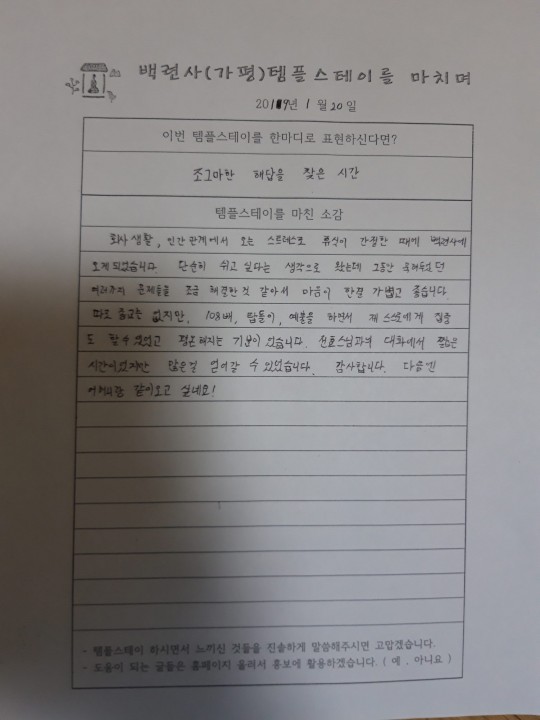 백련사(가평)템플스테이를 마치며
2019년 1월 20일
이번 템플스테이를 한마디로 표현하신다면?
조그마한 해답을 찾은 시간
템플스테이를 마친 소감
회사 생활, 인간관계에서 오는 스트레스로 휴식이 간절한 때에 백련사에
오게되었습니다. 단순히 쉬고싶다는 생각으로 왔는데 그동안
여러가지 문제들을 조금 해결한것 같아서 마음이 한결 가볍고 좋습니다.
따로 종교는 없지만, 108배, 탑돌이, 예불을 하면서 제 스스로에게 집중
도 할수있었고 평온해지는 기분이 었습니다. 선효스님과의 대화에서 짧은
시간이었지만 많은걸 얻어갈 수 있었습니다. 감사합니다. 다음엔
어머니랑 같이오고 싶네요!
- 템플스테이 하시면서 느끼신 것들을 진솔하게 말씀해주시면 고맙겠습니다.
- 도움이 되는 글들은 홈페이지 올려서 홍보에 활용하겠습니다. ( 예 , 아니요 )